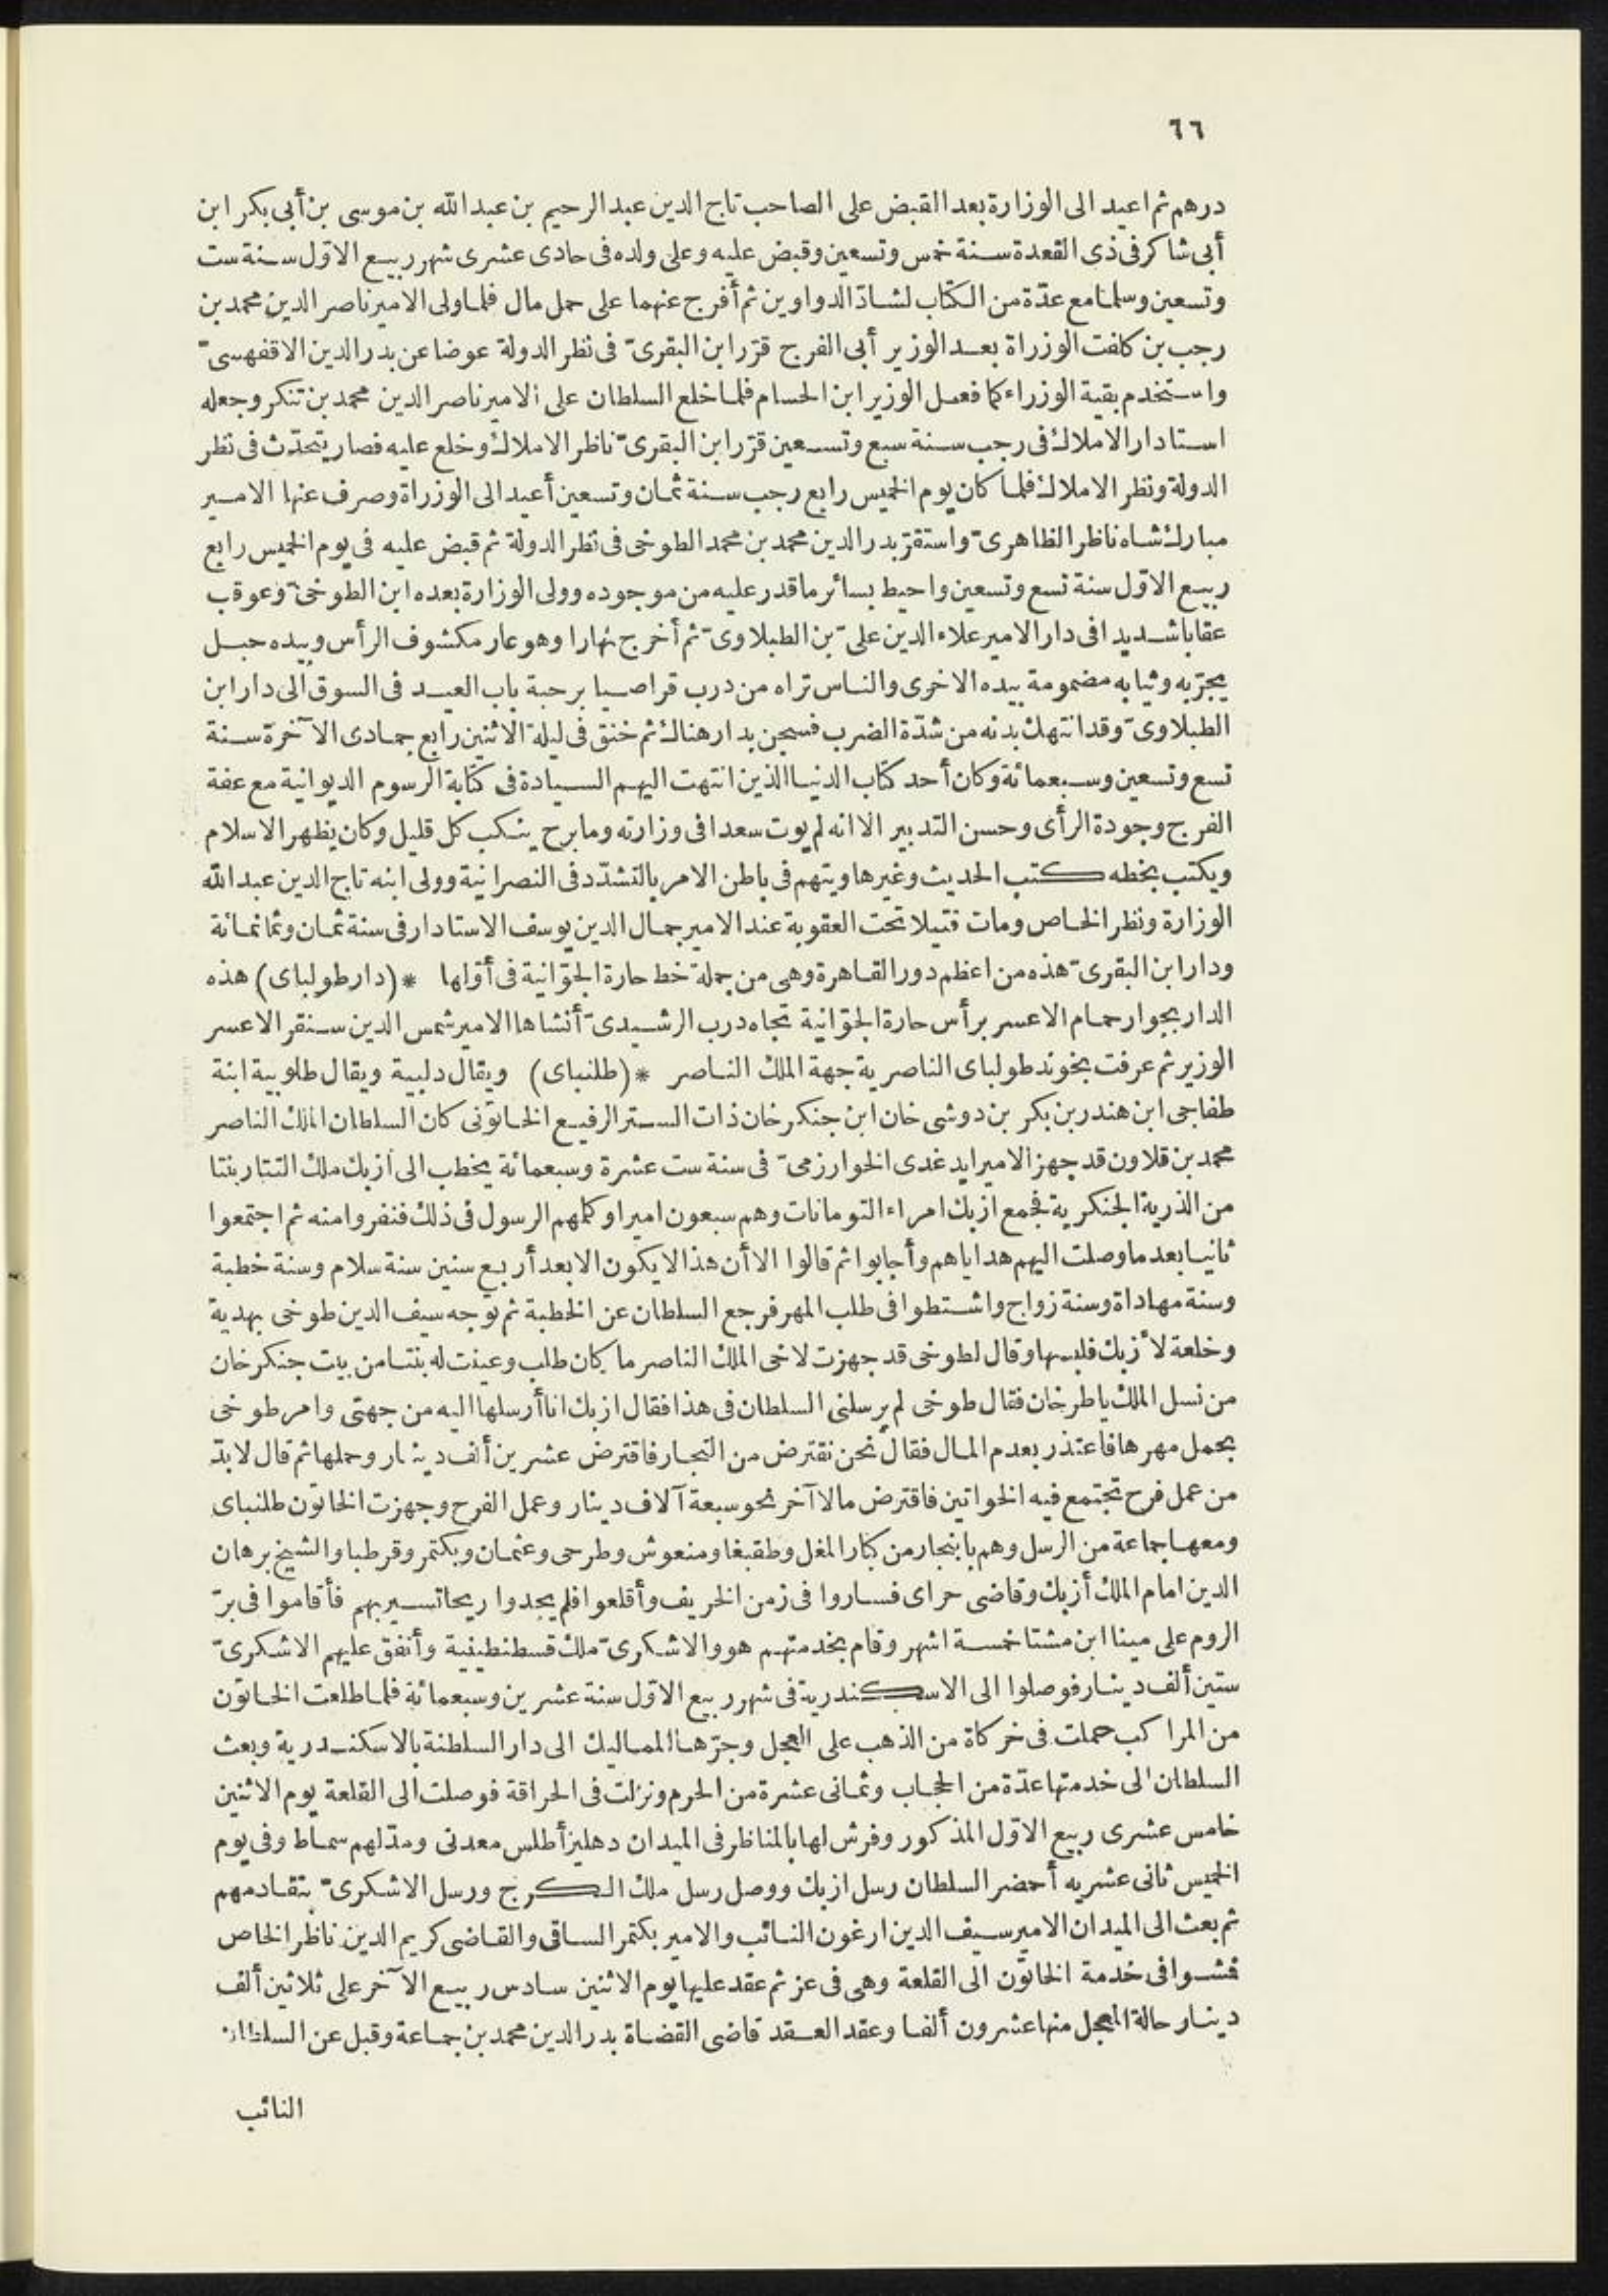 ٦٦
درهم ثم اعيد الى الوزارة بعد القبض على الصاحب تاج الدين عبد الرحيم بن عبد الله بن موسى بن أبى بكر ابن
أبى شاكر فى ذى القعدة سنة خمس وتسعين وقبض عليه وعلى ولده فى حادى عشرى شهر ربيع الاوّل سنة ست
وتسعين وسلما مع عدّة من الكتاب لشادّ الدواوين ثم أفرج عنهما على حمل مال فلما ولى الامير ناصر الدين محمد بن
رجب بن كلفت الوزراة بعد الوزير أبى الفرج قرّر ابن البقرىّ فى نظر الدولة عوضا عن بدر الدين الاقفهسىّ
واستخدم بقية الوزراء كما فعل الوزير ابن الحسام فلما خلع السلطان على الامير ناصر الدين محمد بن تنكر وجعله
استادار الاملاك فى رجب سنة سبع وتسعين قرّر ابن البقرىّ ناظر الاملاك وخلع عليه فصار يتحدّث فى نظر
الدولة ونظر الاملاك فلما كان يوم الخميس رابع رجب سنة ثمان وتسعين أعيد الى الوزراة وصرف عنها الامير
مبارك شاه ناظر الظاهرىّ واستقرّ بدر الدين محمد بن محمد الطوخى فى نظر الدولة ثم قبض عليه فى يوم الخميس رابع
ربيع الاوّل سنة تسع وتسعين واحيط بسائر ما قدر عليه من موجوده وولى الوزارة بعده ابن الطوخىّ وعوقب
عقابا شديدا فى دار الامير علاء الدين علىّ بن الطبلاوىّ ثم أخرج نهارا وهو عار مكشوف الرأس وبيده حبل
يجرّ به وثيابه مضمومة بيده الاخرى والناس تراه من درب قراصيا برحبة باب العيد فى السوق الى دار ابن
الطبلاوىّ وقد انتهك بدنه من شدّة الضرب فسجن بدار هناك ثم خنق فى ليلة الاثنين رابع جمادى الآخرة سنة
تسع وتسعين وسبعمائة وكان أحد كتاب الدنيا الذين انتهت اليهم السيادة فى كتابة الرسوم الديوانية مع عفة
الفرج وجودة الرأى وحسن التدبير الا انه لم يوت سعدا فى وزارته وما برح ينكب كل قليل وكان يظهر الاسلام
ويكتب بخطه كتب الحديث وغيرها ويتهم فى باطن الامر بالتشدّد فى النصرانية وولى ابنه تاج الدين عبد الله
الوزارة ونظر الخاص ومات قتيلا تحت العقوبة عند الامير جمال الدين يوسف الاستادار فى سنة ثمان وثمانمائة
ودار ابن البقرىّ هذه من اعظم دور القاهرة وهى من جملة خط حارة الجوّانية فى أوّلها * (دار طولباى) هذه
الدار بجوار حمام الاعسر برأس حارة الجوّانية تجاه درب الرشيدىّ أنشاها الامير شمس الدين سنقر الاعسر
الوزير ثم عرفت بخوند طولباى الناصرية جهة الملك الناصر * (طلنباى) ويقال دلبية ويقال طلوبية ابنة
طفاجى ابن هندر بن بكر بن دوشى خان ابن جنكر خان ذات الستر الرفيع الخاتونى كان السلطان الملك الناصر
محمد بن قلاون قد جهز الامير ايدغدى الخوارزمىّ فى سنة ست عشرة وسبعمائة يخطب الى ازبك ملك التتار بنتا
من الذرية الجنكرية فجمع ازبك امراء التومانات وهم سبعون اميرا وكلهم الرسول فى ذلك فنفروا منه ثم اجتمعوا
ثانيا بعد ما وصلت اليهم هداياهم وأجابوا ثم قالوا الا أن هذا لا يكون الا بعد أربع سنين سنة سلام وسنة خطبة
وسنة مهاداة وسنة زواج واشتطوا فى طلب المهر فرجع السلطان عن الخطبة ثم توجه سيف الدين طوخى بهدية
وخلعة لأزبك فلبسها وقال لطوخى قد جهزت لاخى الملك الناصر ما كان طلب وعينت له بنتا من بيت جنكر خان
من نسل الملك ياطر خان فقال طوخى لم يرسلنى السلطان فى هذا فقال ازبك انا أرسلها اليه من جهتى وامر طوخى
بحمل مهرها فاعتذر بعدم المال فقال نحن نقترض من التجار فاقترض عشرين ألف دينار وحملها ثم قال لا بدّ
من عمل فرح تجتمع فيه الخواتين فاقترض مالا آخر نحو سبعة آلاف دينار وعمل الفرح وجهزت الخاتون طلنباى
ومعها جماعة من الرسل وهم باينجار من كبار المغل وطقبغا ومنعوش وطرحى وعثمان وبكتمر وقرطبا والشيخ برهان
الدين امام الملك أزبك وقاضى حراى فساروا فى زمن الخريف وأقلعوا فلم يجدوا ريحا تسير بهم فأقاموا فى برّ
الروم على مينا ابن مشتا خمسة اشهر وقام بخدمتهم هو والاشكرىّ ملك قسطنطينية وأنفق عليهم الاشكرىّ
ستين ألف دينار فوصلوا الى الاسكندرية فى شهر ربيع الاوّل سنة عشرين وسبعمائة فلما طلعت الخاتون
من المراكب حملت فى خركاة من الذهب على العجل وجرّها المماليك الى دار السلطنة بالاسكندرية وبعث
السلطان الى خدمتها عدّة من الحجاب وثمانى عشرة من الحرم ونزلت فى الحراقة فوصلت الى القلعة يوم الاثنين
خامس عشرى ربيع الاوّل المذكور وفرش لها بالمناظر فى الميدان دهليز أطلس معدنى ومدّ لهم سماط وفى يوم
الخميس ثانى عشريه أحضر السلطان رسل ازبك ووصل رسل ملك الكرج ورسل الاشكرىّ بتقادمهم
ثم بعث الى الميدان الامير سيف الدين ارغون النائب والامير بكتمر الساقى والقاضى كريم الدين ناظر الخاص
فمشوا فى خدمة الخاتون الى القلعة وهى فى عز ثم عقد عليها يوم الاثنين سادس ربيع الآخر على ثلاثين ألف
دينار حالة المعجل منها عشرون ألفا وعقد العقد قاضى القضاة بدر الدين محمد بن جماعة وقبل عن السلطان
النائب